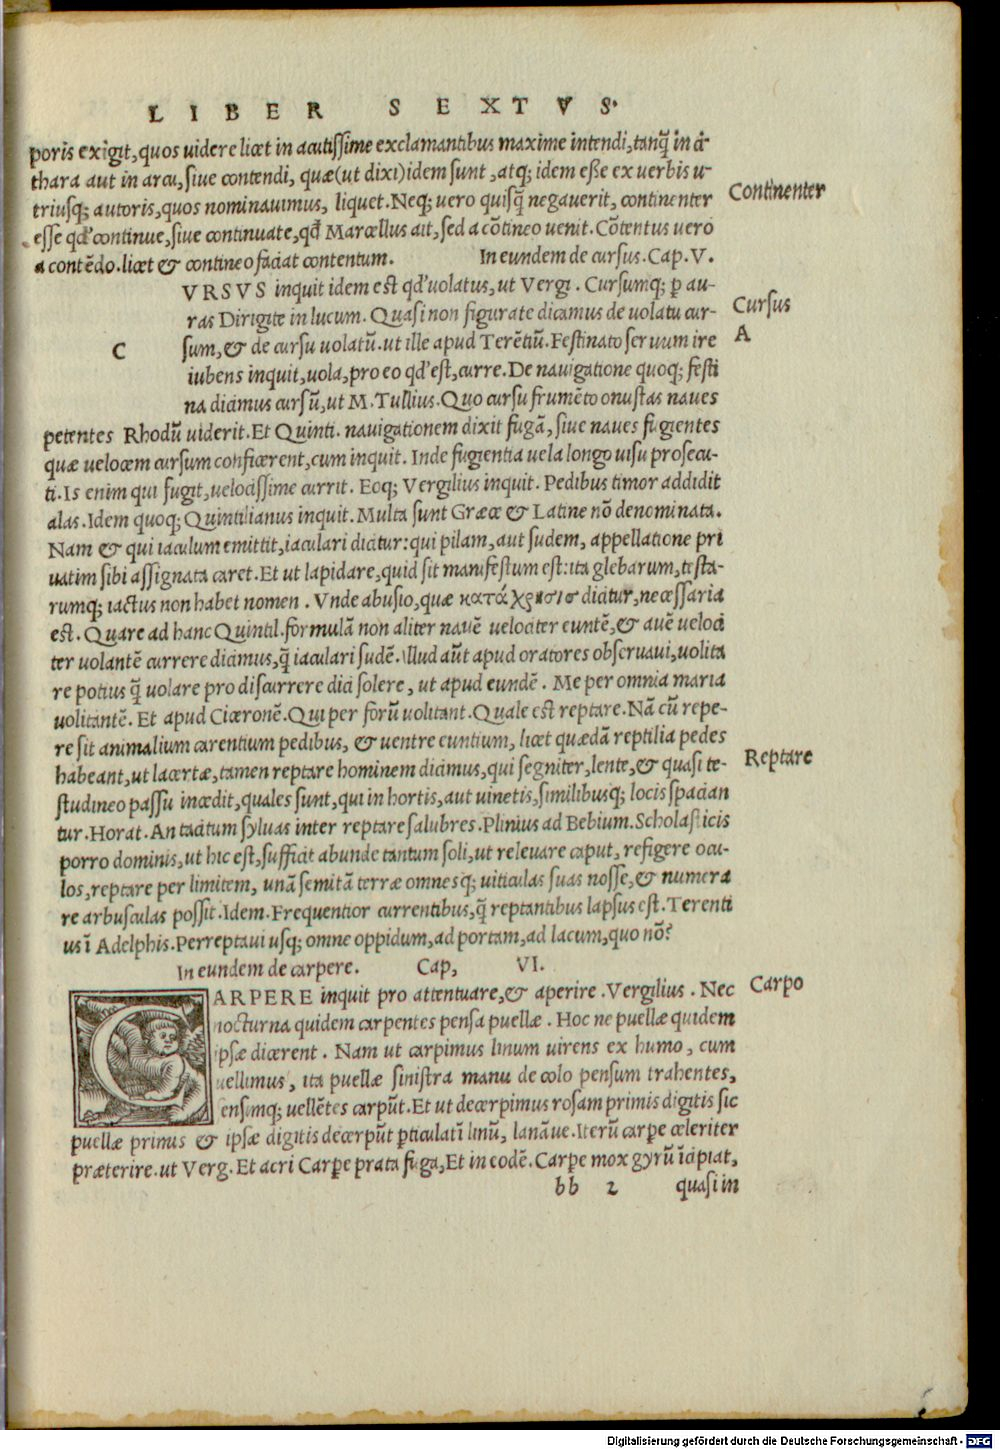 LIBER SEXTVS.
poris exigit, quos uidere licet in acutissime exclamantibus maxime intendi, tanq̃ in ci
thara aut in arcu, siue contendi, quæ (ut dixi) idem sunt, atq; idem esse ex uerbis u-
triusq; autoris, quos nominauimus, liquet. Neq; uero quisq̃ negauerit, continenter
Continenter
esse qđ continue, siue continuate, qđ Marcellus ait, sed a cõtineo uenit. Cõtentus uero
a contẽdo. licet & contineo faciat contentum. In eundem de cursus. Cap. V.
C
VRSVS inquit idem est qđ uolatus, ut Vergi. Cursumq; ꝑ au-
ras Dirigite in lucum. Quasi non figurate dicamus de uolatu cur-
Cursus
sum, & de cursu uolatũ. ut ille apud Terẽtiũ. Festinato seruum ire
A
iubens inquit, uola, pro eo qđ est, curre. De nauigatione quoq; festi
na dicimus cursũ, ut M. Tullius. Quo cursu frumẽto onustas naues
petentes Rhodũ uiderit. Et Quinti. nauigationem dixit fugã, siue naues fugientes
quæ uelocem cursum conficerent, cum inquit. Inde fugientia uela longo uisu prosecu-
ti. Is enim qui fugit, uelocissime currit. Eoq; Vergilius inquit. Pedibus timor addidit
alas. Idem quoq; Quintilianus inquit. Multa sunt Græce & Latine nõ denominata.
Nam & qui iaculum emittit, iaculari dicitur: qui pilam, aut sudem, appellatione pri
uatim sibi assignata caret. Et ut lapidare, quid sit manifestum est: ita glebarum, testa-
rumq; iactus non habet nomen. Vnde abusio, quæ κατάχρισισ dicitur, necessaria
est. Quare ad hanc Quintil. formulã non aliter nauẽ uelociter euntẽ, & auẽ ueloci
ter uolantẽ currere dicimus, q̃ iaculari sudẽ. Illud aũt apud oratores obseruaui, uolita
re potius q̃ uolare pro discurrere dici solere, ut apud eundẽ. Me per omnia maria
uolitantẽ. Et apud Ciceronẽ. Qui per forũ uolitant. Quale est reptare. Nã cũ repe-
re sit animalium carentium pedibus, & uentre euntium, licet quædã reptilia pedes
habeant, ut lacertæ, tamen reptare hominem dicimus, qui segniter, lente, & quasi te-
Reptare
studineo passu incedit, quales sunt, qui in hortis, aut uinetis, similibusq; locis spacian
tur. Horat. An tacitum syluas inter reptare salubres. Plinius ad Bebium. Scholasticis
porro dominis, ut hic est, sufficit abunde tantum soli, ut releuare caput, refigere ocu-
los, reptare per limitem, unã semitã terræ omnesq; uiticulas suas nosse, & numera
re arbusculas possit. Idem. Frequentior currentibus, q̃ reptantibus lapsus est. Terenti
us ĩ Adelphis. Perreptaui usq; omne oppidum, ad portam, ad lacum, quo nõ?
In eundem de carpere. Cap, VI.
CARPERE inquit pro attentuare, & aperire. Vergilius. Nec
Carpo
nocturna quidem carpentes pensa puellæ. Hoc ne puellæ quidem
ipsæ dicerent. Nam ut carpimus linum uirens ex humo, cum
uellimus, ita puellæ sinistra manu de colo pensum trahentes,
ensimq; uellẽtes carpũt. Et ut decerpimus rosam primis digitis sic
puellæ primis & ipsæ digitis decerpũt ꝑticulatĩ linũ, lanãue. Iterũ carpe celeriter
præterire. ut Verg. Et acri Carpe prata fuga, Et in eodẽ. Carpe mox gyrũ ĩcipiat,
bb 2 quasi in
Digitalisierung gefördert durch die Deutsche Forschungsgemeinschaft - DFG